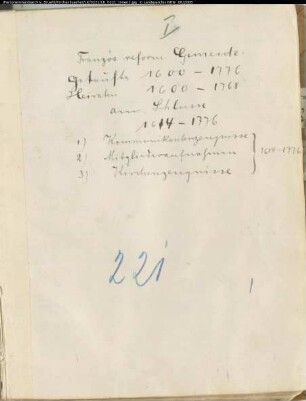 I
Französ reform. Gemeinde.
Getaufte 1600 - 1776
Heiraten 1600 - 1768
am Schlusse
1614 - 1776
1) Kommunikantenzeugnisse
2) Mitgliederaufnahmen
3) Kirchenzeugnisse
1614 - 1776
221